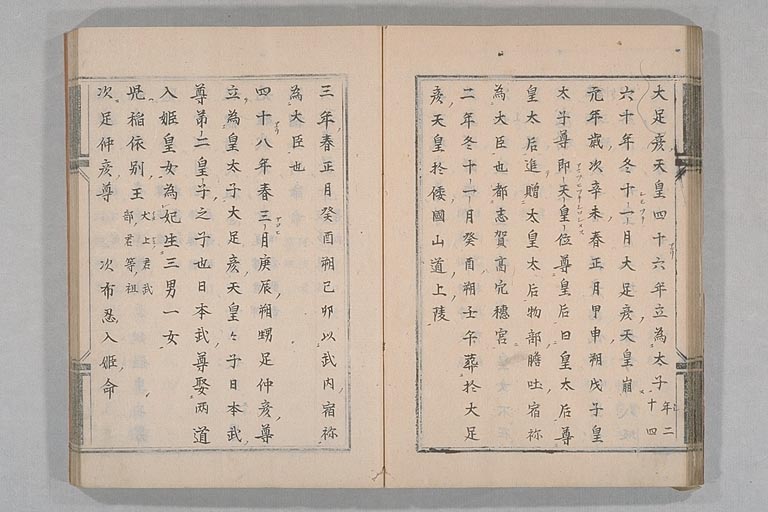 大足彦天皇四十六年立為太子年二十四
六十年冬十一月大足彦天皇崩
元年歳次辛未春正月甲申朔戊子皇
太子尊即天皇位尊皇后曰皇太后尊
皇太后追贈太皇太后物部膽吐宿祢
為大臣也都志賀高穴穗宮
二年冬十一月癸酉朔壬午葬於大足
彦天皇於倭國山道上陵
三年春正月癸酉朔己卯以武内宿祢
為大臣也
四十八年春三月庚辰朔甥足仲彦尊
立為皇太子大足彦天皇々子日本武
尊苐二皇子之子也日本武尊娶兩道
入姫皇女為妃生三男一女
児稲依別王犬上君武部君等祖
次足仲彦尊 次布忍入姫命